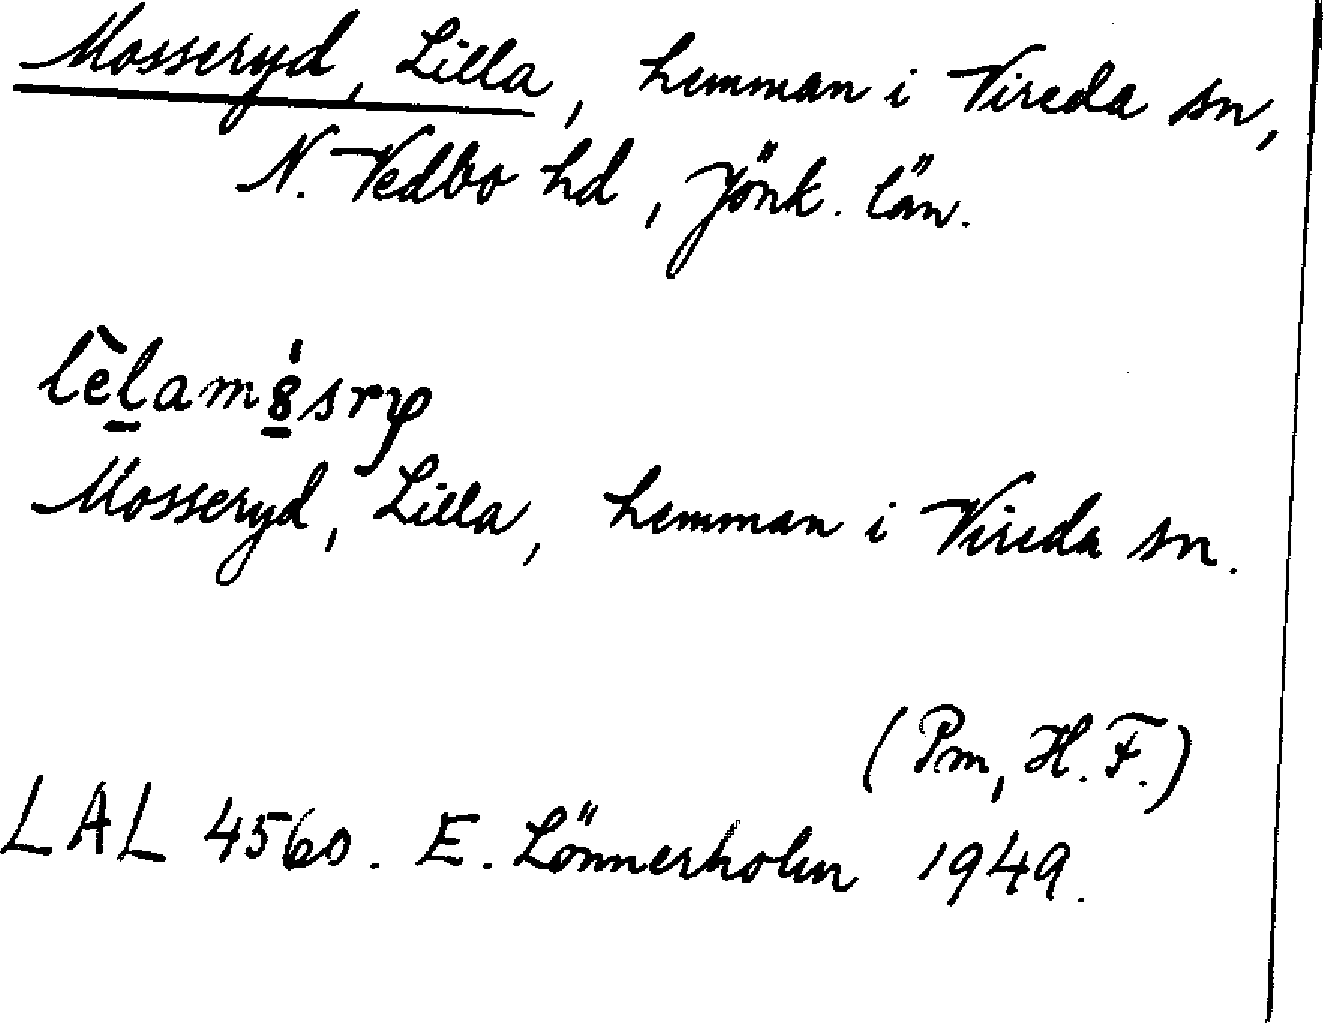 Mosseryd, Lilla, hemman i Vireda sn,
N. Vedbo hd, Jönk. län.
Mosseryd, Lilla, hemman i Vireda sn.
(Pm, H. F.)
LAL 4560. E. Lönnerholm 1949.